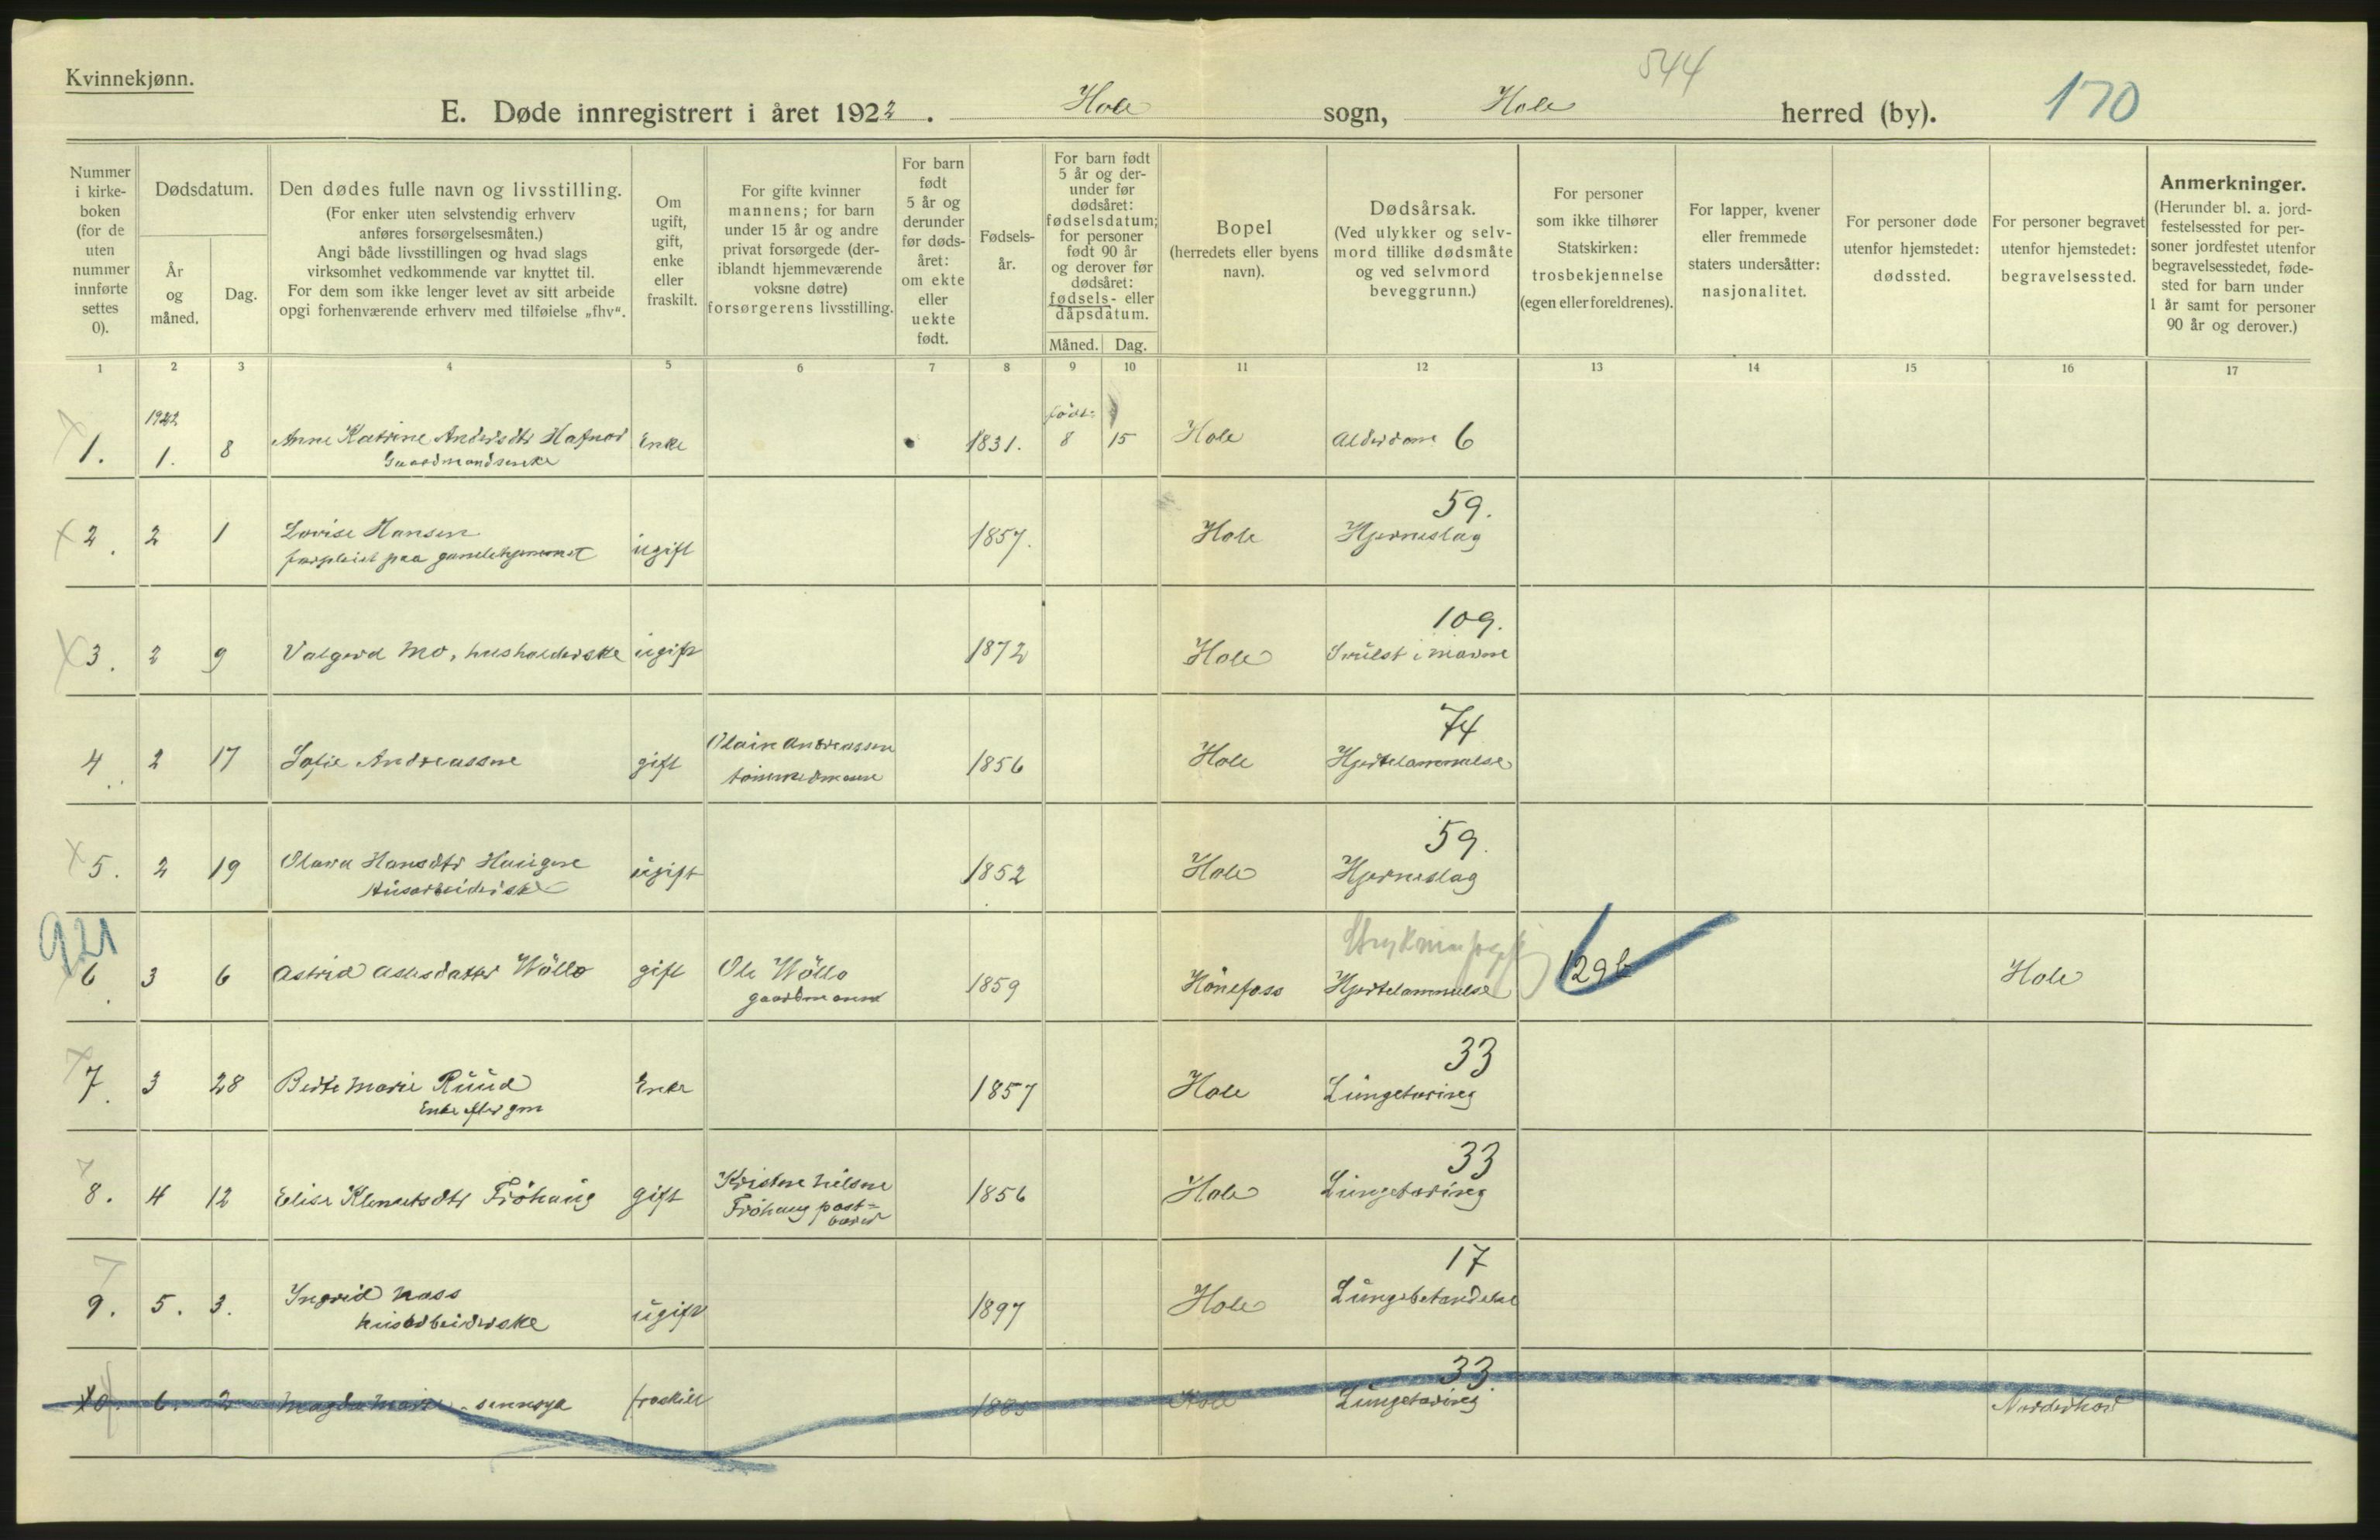 544
Kvinnekjønn.
170
E. Døde innregistrert i året 1922. Hole sogn, Hole herred (by).
Nummer i kirke- boken (for de uten nummer innførte settes 0).
Dødsdatum.
År og måned.
Dag.
Den dødes fulle navn og livsstilling.
(For enker uten selvstendig erhverv
anføres forsørgelsesmåten.)
Angi både livsstillingen og hvad slags
virksomhet vedkommende var knyttet til.
For dem som ikke lenger levet av sitt arbeide
opgi forhenværende erhverv med tilføielse „fhv“.
Om ugift, gift, enke eller fraskilt.
For gifte kvinner
mannens; for barn
under 15 år og andre
privat forsørgede (der-
iblandt hjemmeværende
voksne døtre)
forsørgerens livsstilling.
For barn født 5 år og derunder før døds- året: om ekte eller uekte født.
Fødsels- år.
For barn født
5 år og der-
under før
dødsåret:
fødselsdatum;
for personer
født 90 år
og derover før
dødsåret:
fødsels- eller
dåpsdatum.
Måned. Dag.
Bopel
(herredets eller byens
navn).
Dødsårsak.
(Ved ulykker og selv-
mord tillike dødsmåte
og ved selvmord
beveggrunn.)
For personer
som ikke tilhører
Statskirken:
trosbekjennelse
(egen eller foreldrenes).
For lapper, kvener
eller fremmede
staters undersåtter:
nasjonalitet.
For personer døde
utenfor hjemstedet:
dødssted.
For personer begravet
utenfor hjemstedet:
begravelsessted.
Anmerkninger.
(Herunder bl. a. jord-
festelsessted for per-
soner jordfestet utenfor
begravelsesstedet, føde-
sted for barn under
1 år samt for personer
90 år og derover.)
1 2 3 4 5 6 7 8 9 10 11 12 13 14 15 16 17
1922 født=
1. 1. 8 Anne Katrine Andersdtr Hafnor Enke 1831. 8 15 Hole Alderdom 6
Gaardmandsenke
59.
2. 2 1 Lovise Hansen ugift 1857. Hole Hjerneslag
forpleiet paa gamlehjemmet
109.
3. 2 9 Valgerd Mo, husholderske ugift 1872 Hole Svulst i maven
74
4. 2 17 Sofie Andreassen gift Andreassen 1856 Hole Hjertelammelse
tømmermann
59.
5. 2 19 Olava Hansdtr Haugen ugift 1852 Hole Hjerneslag
Husarbeiderske
921
6. 3 6 Astrid Aslesdatter Wöllo gift Ole Wöllo 1859 Hönefoss Hjertelammelse 129b Hole
gaardmann
33
7. 3 28 Berte Marie Ruud Enke 1857 Hole Lungetæring
Enke efter gm
33
8. 4 12 Elise Klemetsdtr Fröhaug gift Kristen Nilsen 1856 Hole Lungetæring
Fröhaug post=
bærer
17
9. 5. 3. Ingrid Nass ugift 1897 Hole Lungebetændelse
husarbeiderske
33.
10. 6. 2 Magda Marie fraskilt Hole Lungetæring Norderhov